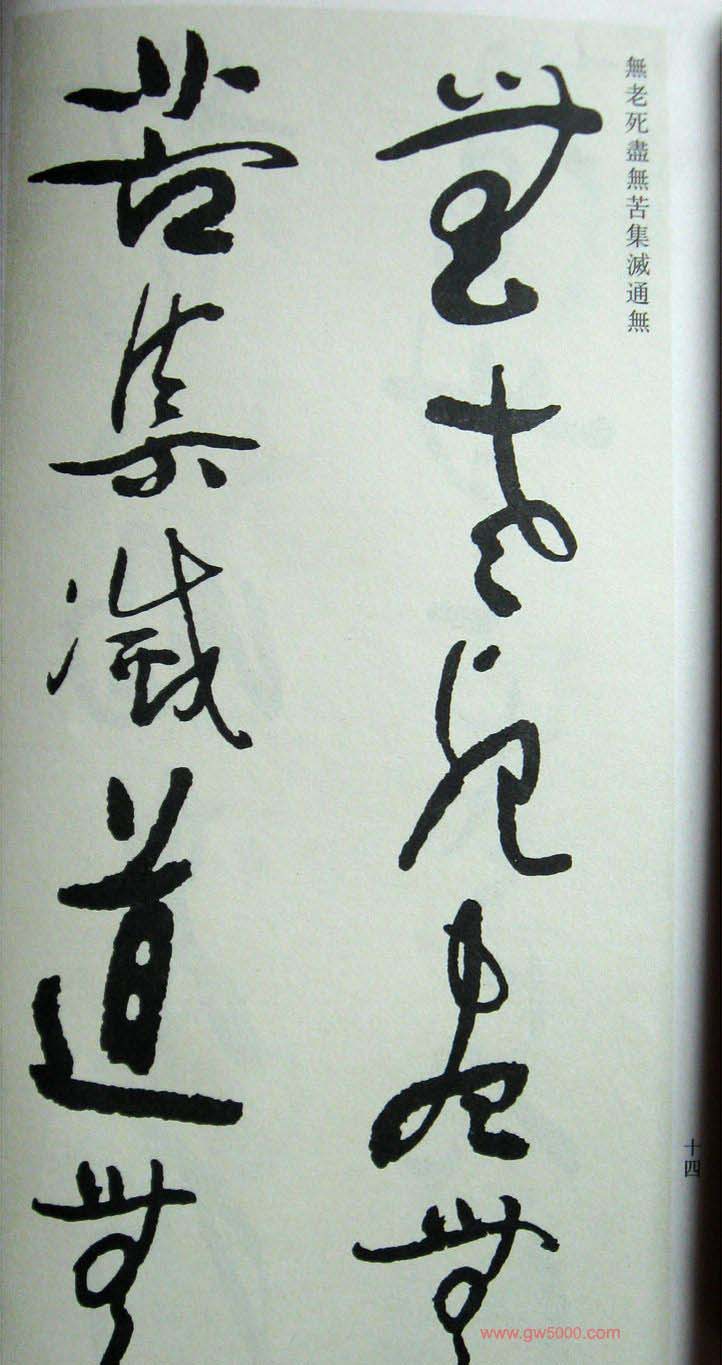 無老死盡無苦集滅通無
無老死盡無
苦集滅道無
十四
www.gw5000.com